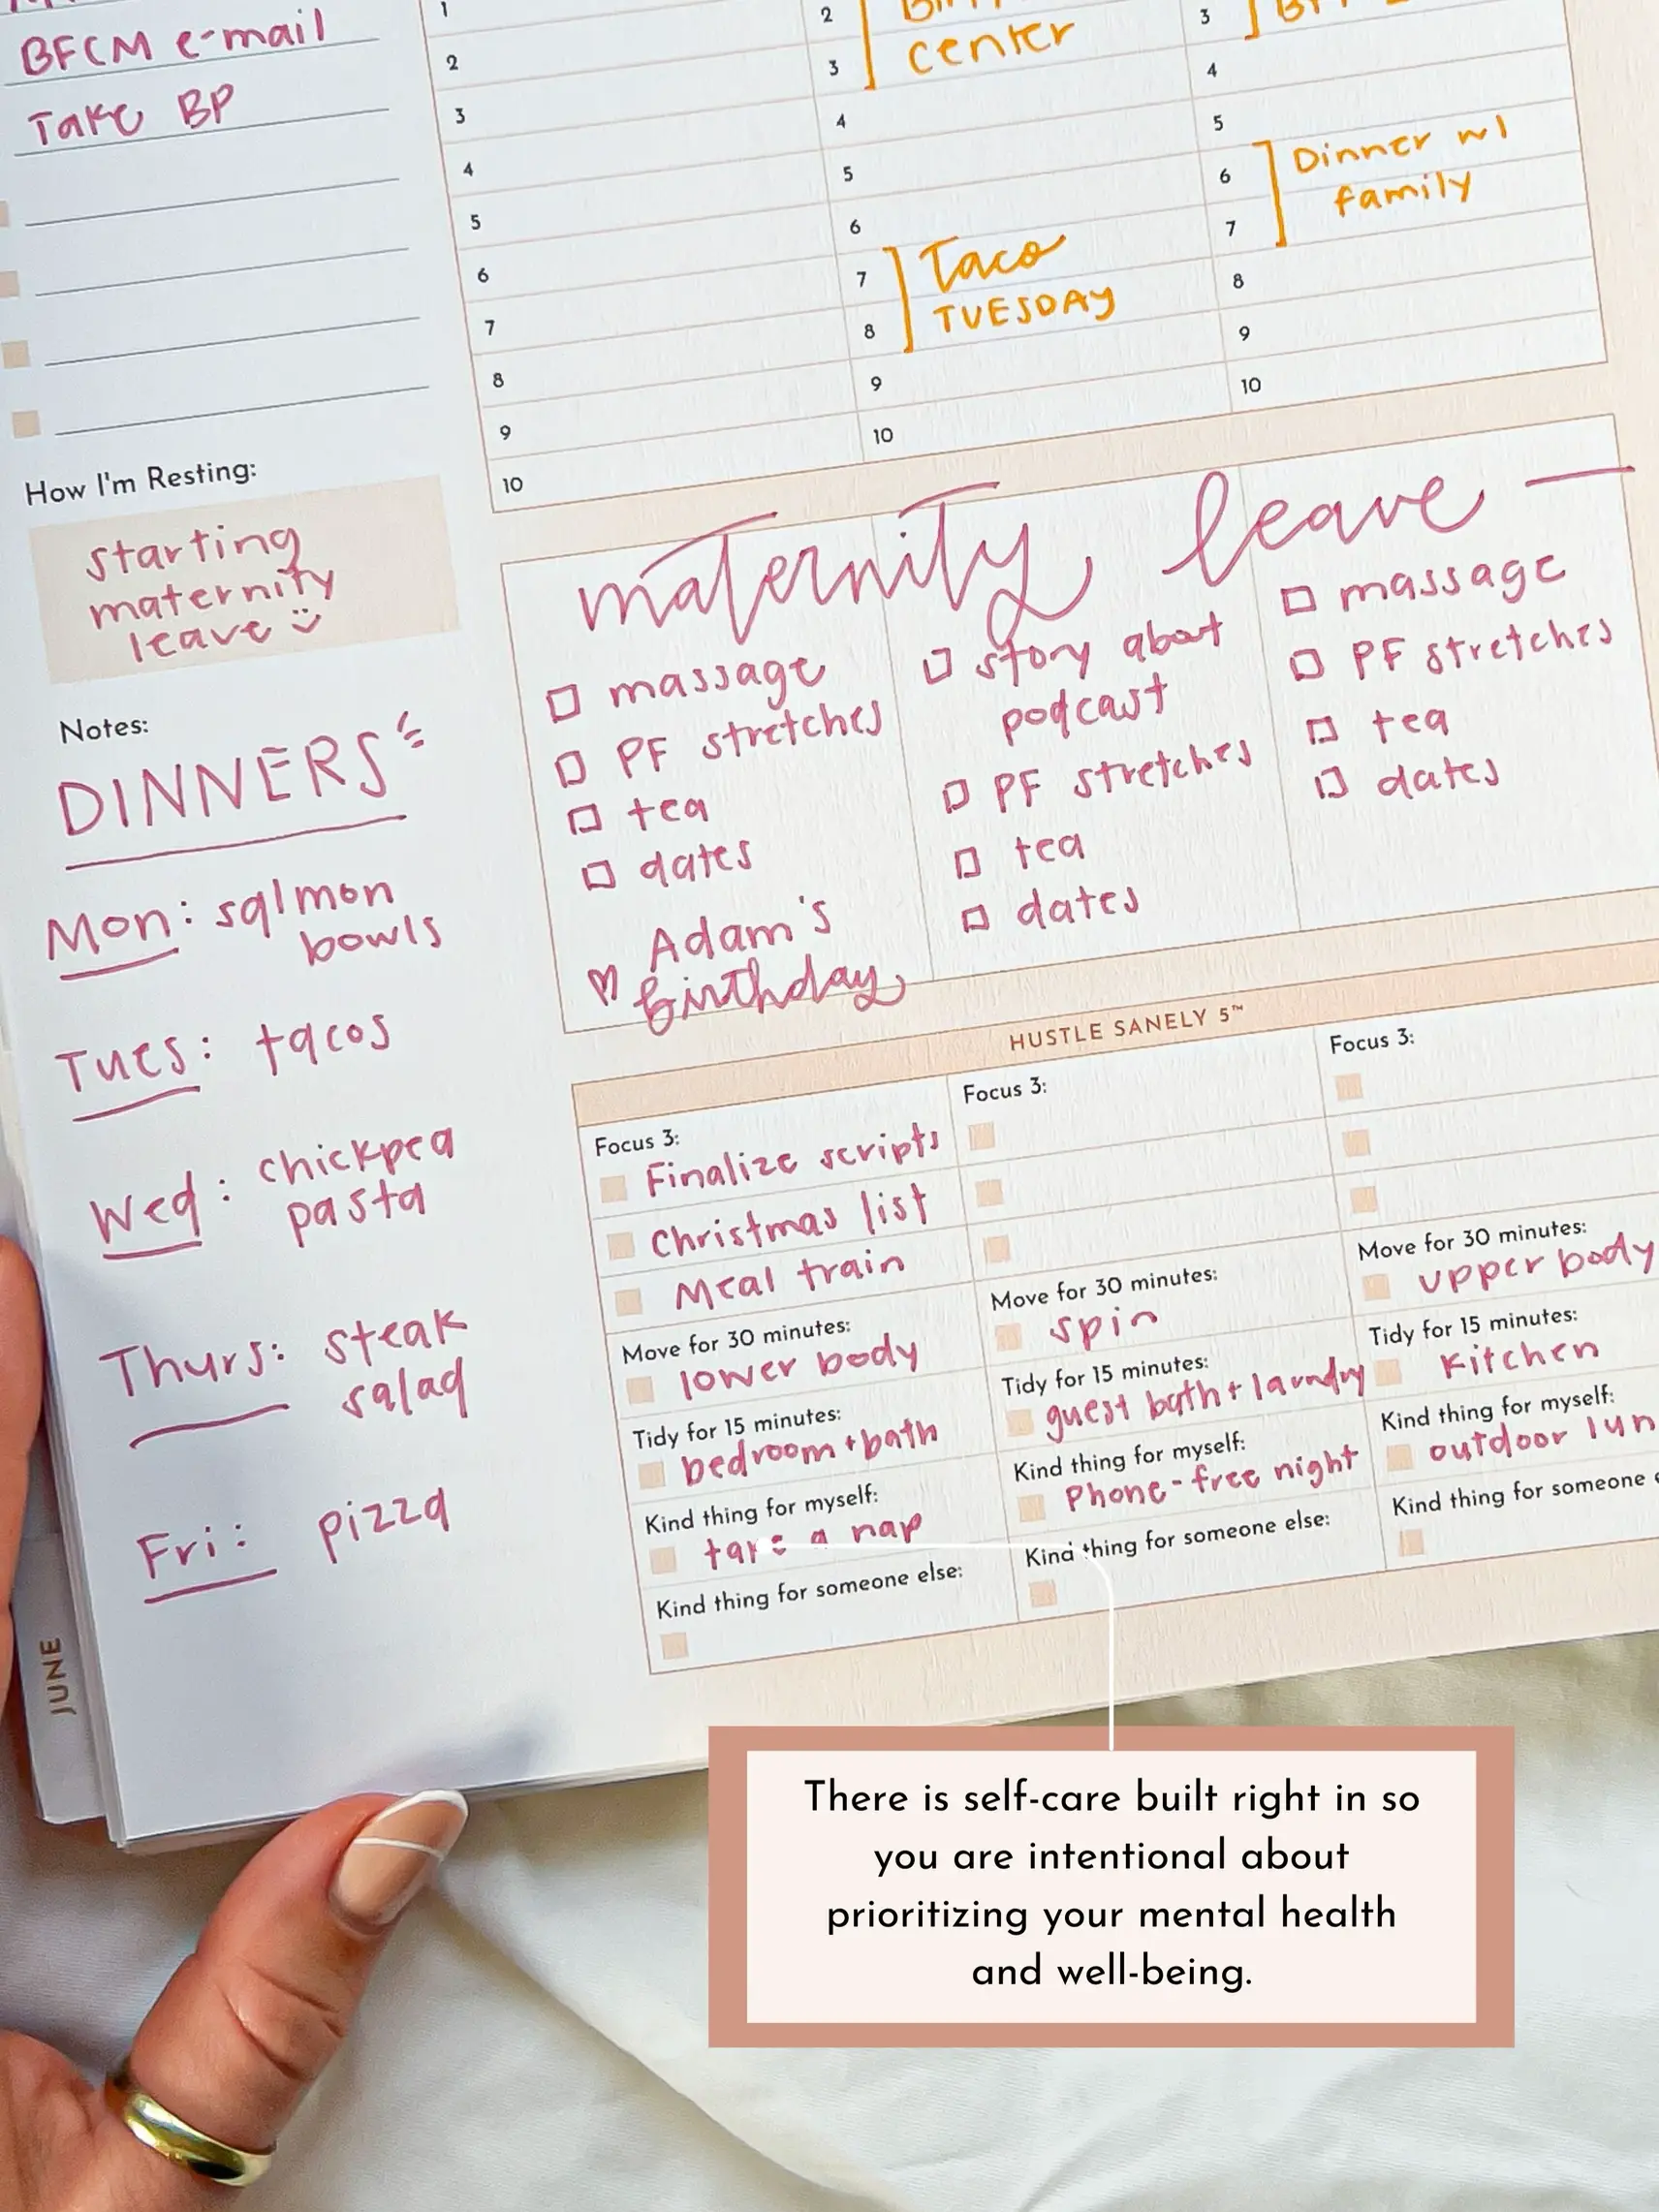 BFCM e-mail
Take BP
How I'm Resting:
starting
maternity
leave
Notes:
DINNERS
Mon: salmon
bowls
Tues: tacos
Wed: chickpea
pasta
Thurs: steak
salad
Fri: pizza
JUNE
1
2
3
4
5
6
7
8
9
10
2
3
4
5
6
7
8
9
10
center
Taco
TUESDAY
3
4
5
6
7
8
9
10
Dinner w/
family
maternity leave
massage
PF stretches
tea
dates
Adam's
birthday
story about
podcast
PF stretches
tea
dates
massage
PF stretches
tea
dates
HUSTLE SANELY 5™
Focus 3:
Finalize scripts
Christmas list
Meal train
Move for 30 minutes:
lower body
Tidy for 15 minutes:
bedroom + bath
Kind thing for myself:
take a nap
Kind thing for someone else:
Focus 3:
Move for 30 minutes:
spin
Tidy for 15 minutes:
guest bath + laundry
Kind thing for myself:
Phone-free night
Kind thing for someone else:
Focus 3:
Move for 30 minutes:
upper body
Tidy for 15 minutes:
kitchen
Kind thing for myself:
outdoor
Kind thing for someone
There is self-care built right in so
you are intentional about
prioritizing your mental health
and well-being.